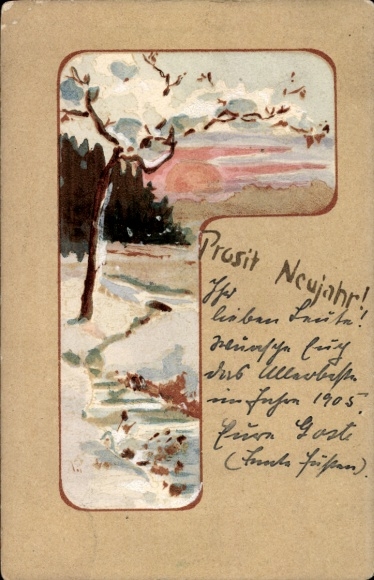 Prosit Neujahr!
Ihr
lieben Leute!
wünsche Euch
das Allerbeste
im Jahre 1905.
Eure
(Tante